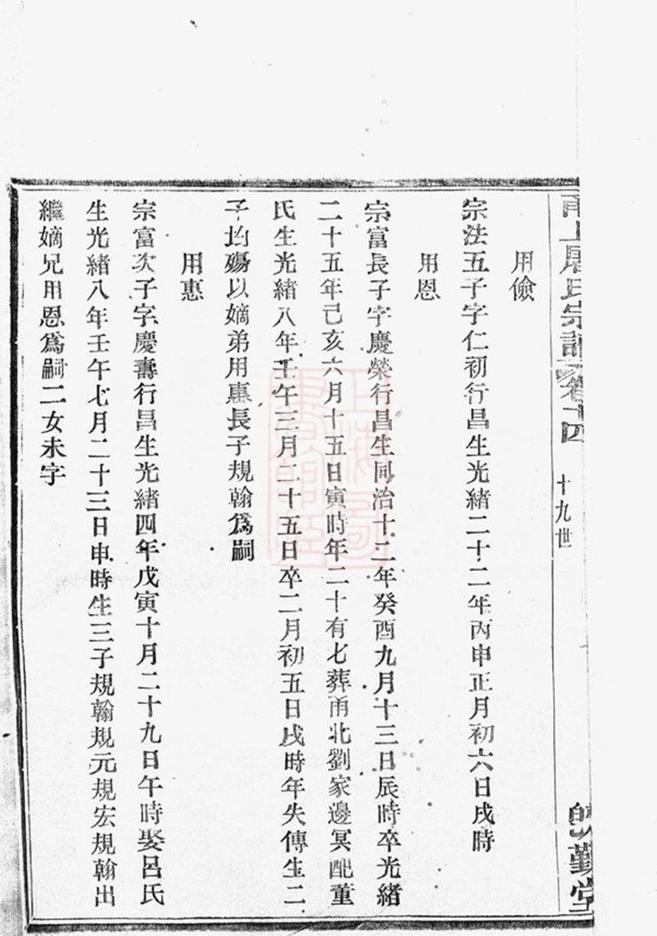 甬上屠氏宗譜 卷十四
十九世
既勤堂
用儉
宗法五子字仁初行昌生光緒二十二年丙申正月初六日戌時
用恩
宗富長子字慶榮行昌生同治十二年癸酉九月十三日辰時卒光緒
二十五年己亥六月十五日寅時年二十有七葬甬北劉家邊冥配董
氏生光緒八年壬午三月二十五日卒二月初五日戌時年失傳生二
子均殤以嫡弟用惠長子規翰爲嗣
用惠
宗富次子字慶壽行昌生光緒四年戊寅十月二十九日午時娶呂氏
生光緒八年壬午七月二十三日申時生三子規翰規元規宏規翰出
繼嫡兄用恩爲嗣二女未字